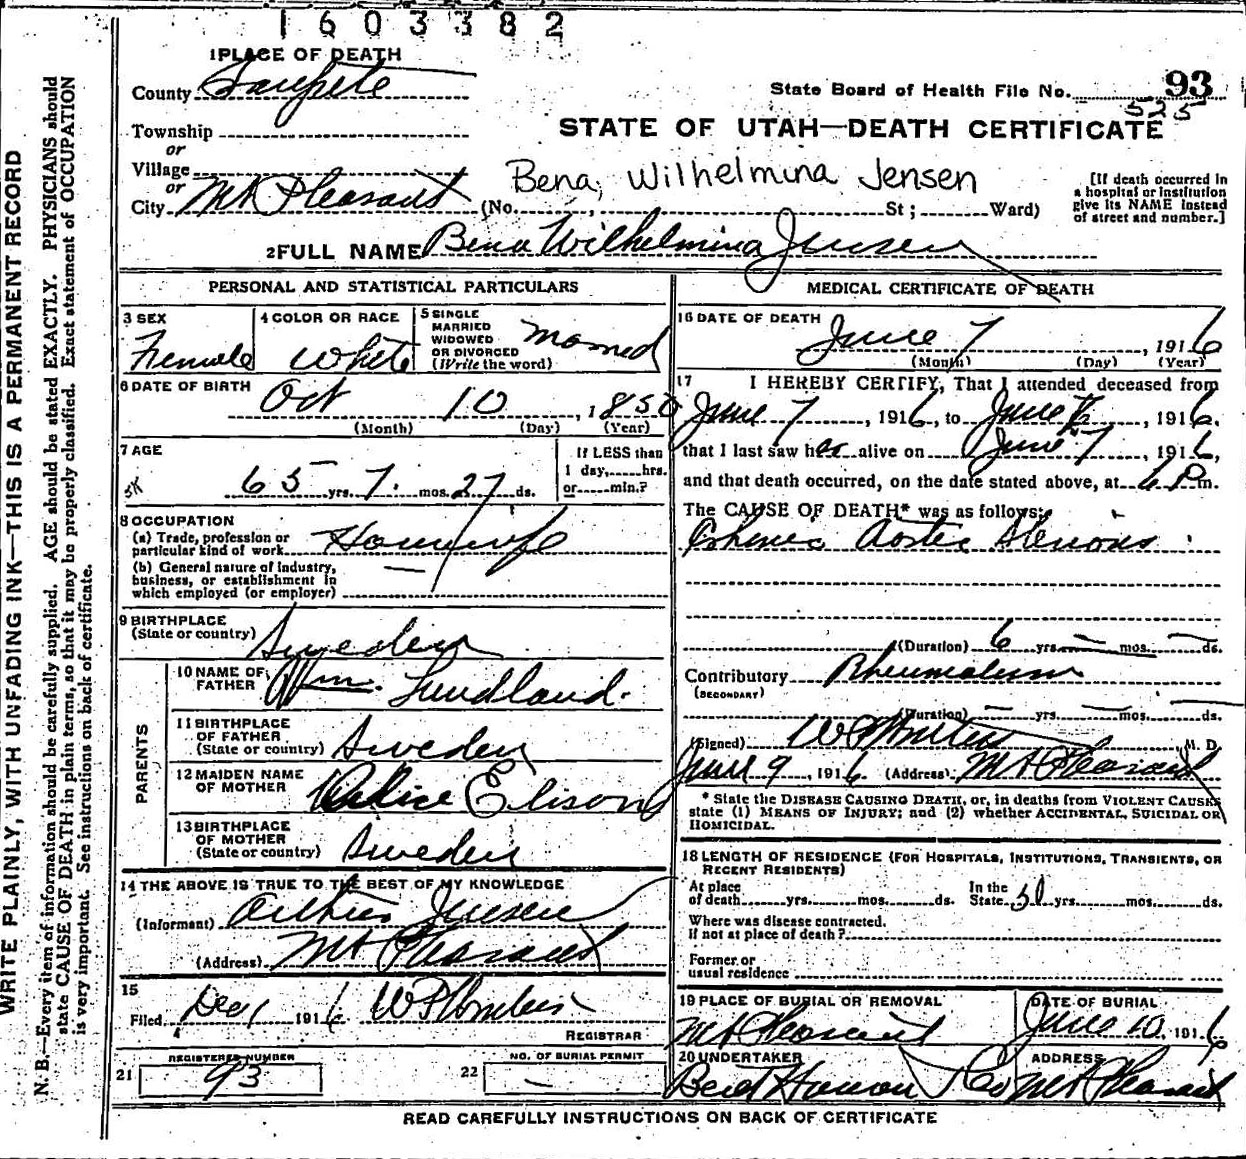 1603382
1 PLACE OF DEATH
County Sanpete
State Board of Health File No. 93
525
Township
STATE OF UTAH—DEATH CERTIFICATE
or
Village
or
Bena, Wilhelmina Jensen
City Mt Pleasant (No. , St; Ward)
[If death occurred in
a hospital or institution
give its NAME instead
of street and number.]
2 FULL NAME Bena Wilhelmina Jensen
PERSONAL AND STATISTICAL PARTICULARS
3 SEX
Female
4 COLOR OR RACE
White
5 SINGLE
MARRIED
WIDOWED
OR DIVORCED
(Write the word)
Married
6 DATE OF BIRTH
Oct 10, 1850
(Month) (Day) (Year)
7 AGE
65 yrs. 7 mos. 27 ds.
If LESS than
1 day, hrs.
or min.?
8 OCCUPATION
(a) Trade, profession or
particular kind of work Housewife
(b) General nature of industry,
business, or establishment in
which employed (or employer)
9 BIRTHPLACE
(State or country) Sweden
PARENTS
10 NAME OF
FATHER Wm. Lundland.
11 BIRTHPLACE
OF FATHER
(State or country) Sweden
12 MAIDEN NAME
OF MOTHER Elison
13 BIRTHPLACE
OF MOTHER
(State or country) Sweden
14 THE ABOVE IS TRUE TO THE BEST OF MY KNOWLEDGE
(Informant) Arthur Jensen
(Address) Mt Pleasant
15
Filed Dec 1 1916 W P
REGISTRAR
REGISTERED NUMBER
21 93
NO. OF BURIAL PERMIT
22 —
MEDICAL CERTIFICATE OF DEATH
16 DATE OF DEATH
June 7, 1916
(Month) (Day) (Year)
17 I HEREBY CERTIFY, That I attended deceased from
June 7, 1916, to June 7, 1916,
that I last saw her alive on June 7, 1916,
and that death occurred, on the date stated above, at 6 P m.
The CAUSE OF DEATH* was as follows:
Aortic
(Duration) 6 yrs. — mos. — ds.
Contributory Rheumatism
(SECONDARY)
(Duration) — yrs. — mos. — ds.
(Signed) W P M. D.
June 9, 1916. (Address) Mt Pleasant
* State the DISEASE CAUSING DEATH, or, in deaths from VIOLENT CAUSES
state (1) MEANS OF INJURY; and (2) whether ACCIDENTAL, SUICIDAL OR
HOMICIDAL.
18 LENGTH OF RESIDENCE (FOR HOSPITALS, INSTITUTIONS, TRANSIENTS, OR
RECENT RESIDENTS)
At place
of death yrs. mos. ds.
In the
State 51 yrs. mos. ds.
Where was disease contracted.
If not at place of death?
Former or
usual residence
19 PLACE OF BURIAL OR REMOVAL
Mt Pleasant
DATE OF BURIAL
June 10, 1916
20 UNDERTAKER
Co
ADDRESS
Mt Pleasant
READ CAREFULLY INSTRUCTIONS ON BACK OF CERTIFICATE
WRITE PLAINLY, WITH UNFADING INK—THIS IS A PERMANENT RECORD
N. B.—Every item of information should be carefully supplied. AGE should be stated EXACTLY. PHYSICIANS should
state CAUSE OF DEATH in plain terms, so that it may be properly classified. Exact statement of OCCUPATION
is very important. See instructions on back of certificate.